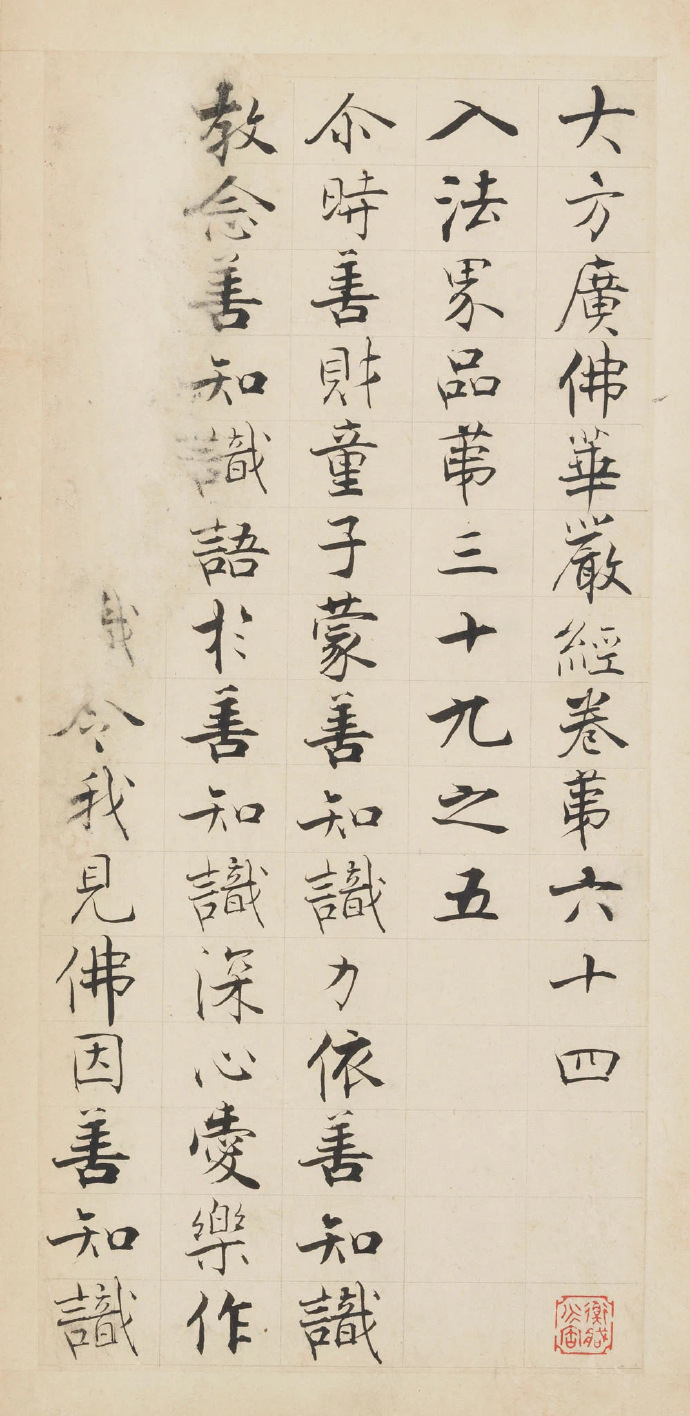 大方廣佛華嚴經卷第六十四
入法界品第三十九之五
尒時善財童子蒙善知識力依善知識
教念善知識語於善知識深心愛樂作
令我見佛因善知識